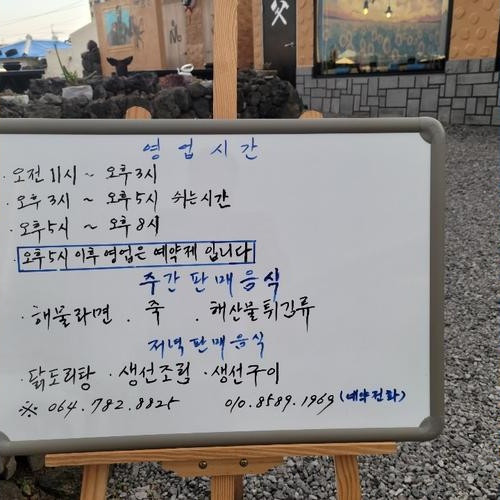 영업시간
· 오전 11시 ~ 오후 3시
· 오후 3시 ~ 오후 5시 쉬는시간
· 오후 5시 ~ 오후 8시
오후 5시 이후 영업은 예약제 입니다
주간판매음식
· 해물라면 . 죽 . 해산물튀김류
저녁판매음식
· 닭도리탕 · 생선조림 · 생선구이
※ 064.782.8825 010.8589.1969 (예약전화)